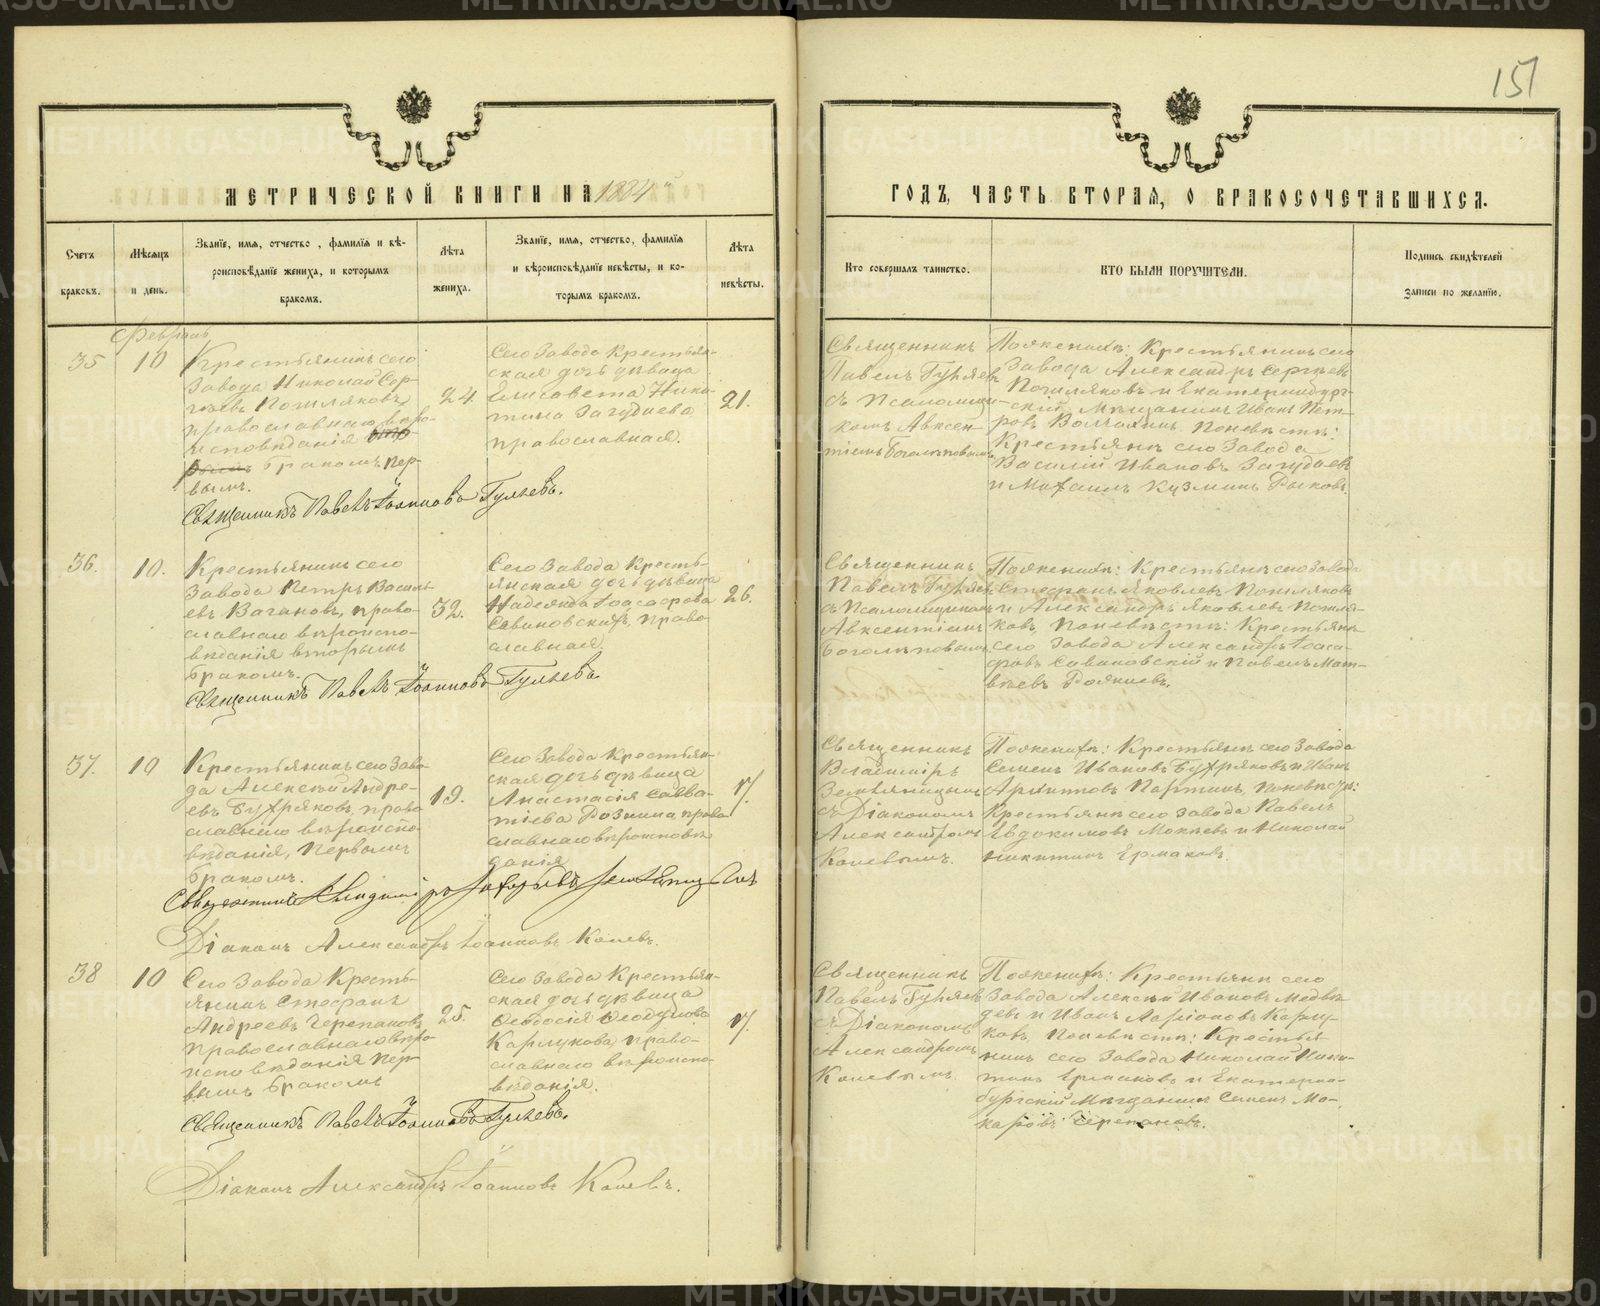 151
МЕТРИЧЕСКОЙ КНИГИ НА 1884 й
ГОДЪ, ЧАСТЬ ВТОРАЯ, О БРАКОСОЧЕТАВШИХСЯ.
Счетъ
браковъ.
Мѣсяцъ
и день.
Званїе, имя, отчество, фамилїя и вѣ-
роисповѣданїе жениха, и которымъ
бракомъ.
Лѣта
жениха.
Званїе, имя, отчество, фамилїя
и вѣроисповѣданїе невѣсты, и ко-
торымъ бракомъ.
Лѣта
невѣсты.
Кто совершалъ таинство.
КТО БЫЛИ ПОРУЧИТЕЛИ.
Подпись свидѣтелей
записи по желанїю.
Февраль
35
10
Крестьянинъ сего
Завода Николай Сер-
гѣевъ Попиляковъ
православнаго вѣро-
исповѣданія
бракомъ пер-
вымъ.
24.
Сего Завода Крестьян-
ская дочь дѣвица
Елисавета Ники-
тина Загудаева
православная.
21.
Священникъ
Павелъ Гуляевъ
съ Псаломщи-
комъ Авксен-
тіемъ Боголѣповымъ
По женихѣ: Крестьянинъ сего
Завода Александръ Сергѣевъ
Попиляковъ и Екатеринбург-
скій Мѣщанинъ Иванъ Пет-
ровъ По невѣстѣ:
Крестьяне сего Завода
Василій Ивановъ Загудаевъ
и Михаилъ Кузминъ Рыковъ.
Священникъ Павелъ Іоанновъ Гуляевъ.
36.
10.
Крестьянинъ сего
Завода Петръ Василь-
евъ Вагановъ, право-
славнаго вѣроиспо-
вѣданія вторымъ
бракомъ.
32.
Сего Завода Кресть-
янская дочь дѣвица
Надежда Іоасафова
Савиновскихъ, право-
славная.
26.
Священникъ
Павелъ Гуляевъ
съ Псаломщикомъ
Авксентіемъ
Боголѣповымъ
По женихѣ: Крестьяне сего Завода
Стефанъ Яковлевъ Попиляковъ
и Александръ Яковлевъ Попиля-
ковъ. По невѣстѣ: Крестьяне
сего Завода Александръ Іоаса-
фовъ Савиновскій и Павелъ Мат-
вѣевъ
Священникъ Павелъ Іоанновъ Гуляевъ
37.
10
Крестьянинъ сего Заво-
да Алексѣй Андре-
евъ Бухряковъ, право-
славнаго вѣроиспо-
вѣданія, первымъ
бракомъ.
19.
Сего Завода Крестьян-
ская дочь дѣвица
Анастасія Савва-
тіева Рознина, право-
славнаго вѣроисповѣ-
данія
17.
Священникъ
Владиміръ
Земляницынъ
съ Діакономъ
Александромъ
Колевымъ.
По женихѣ: Крестьяне сего Завода
Семенъ Ивановъ Бухряковъ и Иванъ
Архиповъ Партинъ, По невѣстѣ:
Крестьяне сего Завода Павелъ
Евдокимовъ Мокѣевъ и Николай
Никитинъ Ермаковъ.
Священникъ Владиміръ Земляницынъ
Діаконъ Александръ Іоанновъ Колевъ.
38
10
Сего Завода Кресть-
янинъ Стефанъ
Андреевъ Черепановъ
православнаго вѣро-
исповѣданія пер-
вымъ бракомъ
25.
Сего Завода Крестьян-
ская дочь дѣвица
Ѳеодосія Ѳеодулова
Карпукова право-
славнаго вѣроиспо-
вѣданія.
17.
Священникъ
Павелъ Гуляевъ
съ Діакономъ
Александромъ
Колевымъ
По женихѣ: Крестьяне сего
Завода Алексѣй Ивановъ Медвѣ-
девъ и Иванъ Ларіоновъ Карпу-
ковъ По невѣстѣ: Крестья-
нинъ сего Завода Николай Ники-
тинъ Ермаковъ и Екатерин-
бургскій Мѣщанинъ Семенъ Ма-
каровъ Черепановъ.
Священникъ Павелъ Іоанновъ Гуляевъ.
Діаконъ Александръ Іоанновъ Колевъ.
METRIKI.GASO-URAL.RU